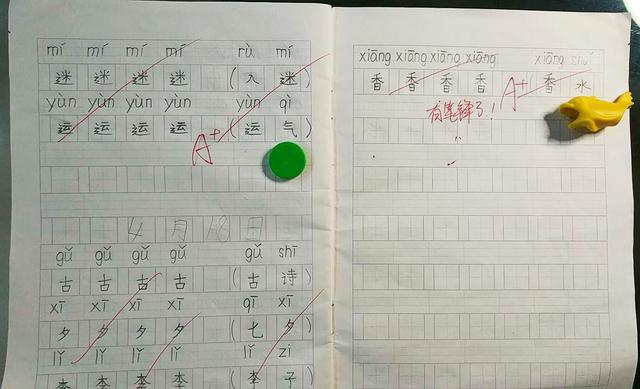 mí mí mí mí rù mí
迷 迷 迷 迷 ( 入 迷 )
yùn yùn yùn yùn yùn qì
运 运 运 运 ( 运 气 )
A+
4月18日
gǔ gǔ gǔ gǔ gǔ shī
古 古 古 古 ( 古 诗 )
xī xī xī xī qī xī
夕 夕 夕 夕 ( 七 夕 )
lǐ lǐ lǐ lǐ lǐ zi
李 李 李 李 ( 李 子 )
xiāng xiāng xiāng xiāng xiāng shuǐ
香 香 香 香 ( 香 水
A+
有笔锋了!